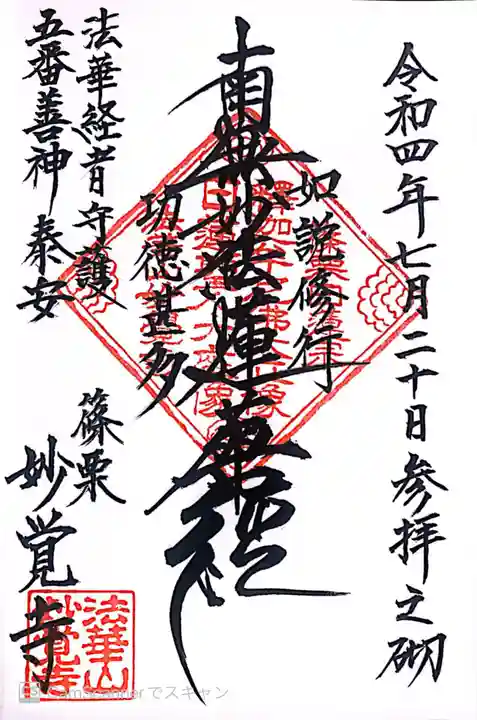 令和四年七月二十日参拝之砌
如説修行
南無妙法蓮華経
功徳甚多
法華経者守護
五番善神 泰安
篠栗
妙覚寺
法華山
妙覚寺
CS CamScannerでスキャン